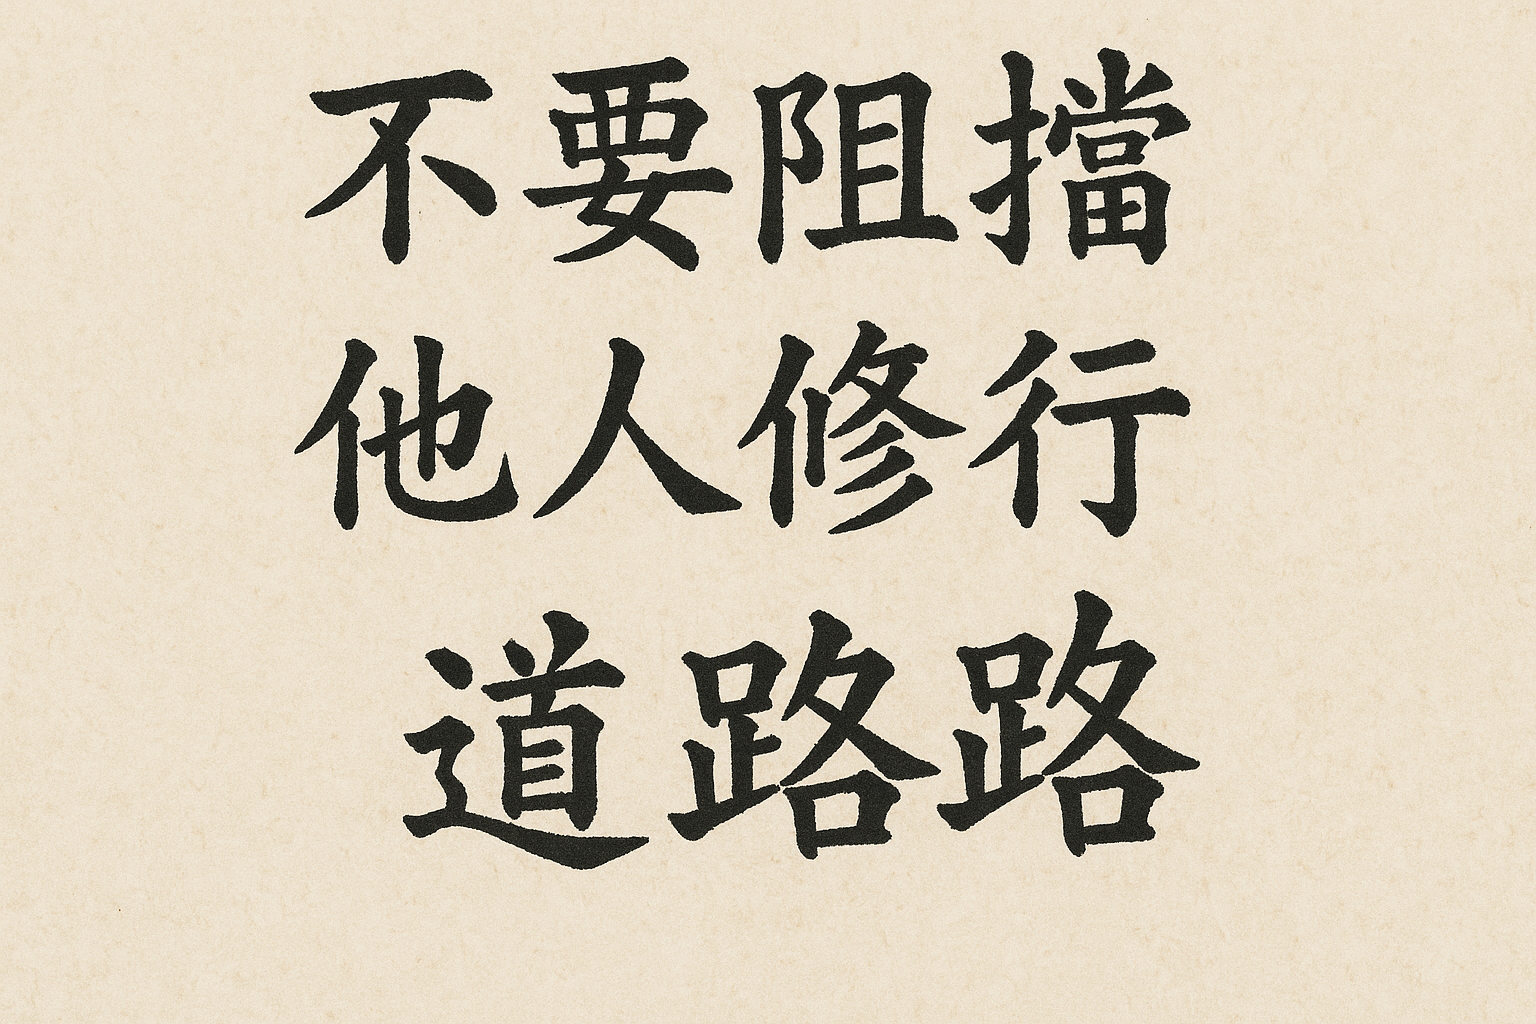 不要阻擋
他人修行
道路路